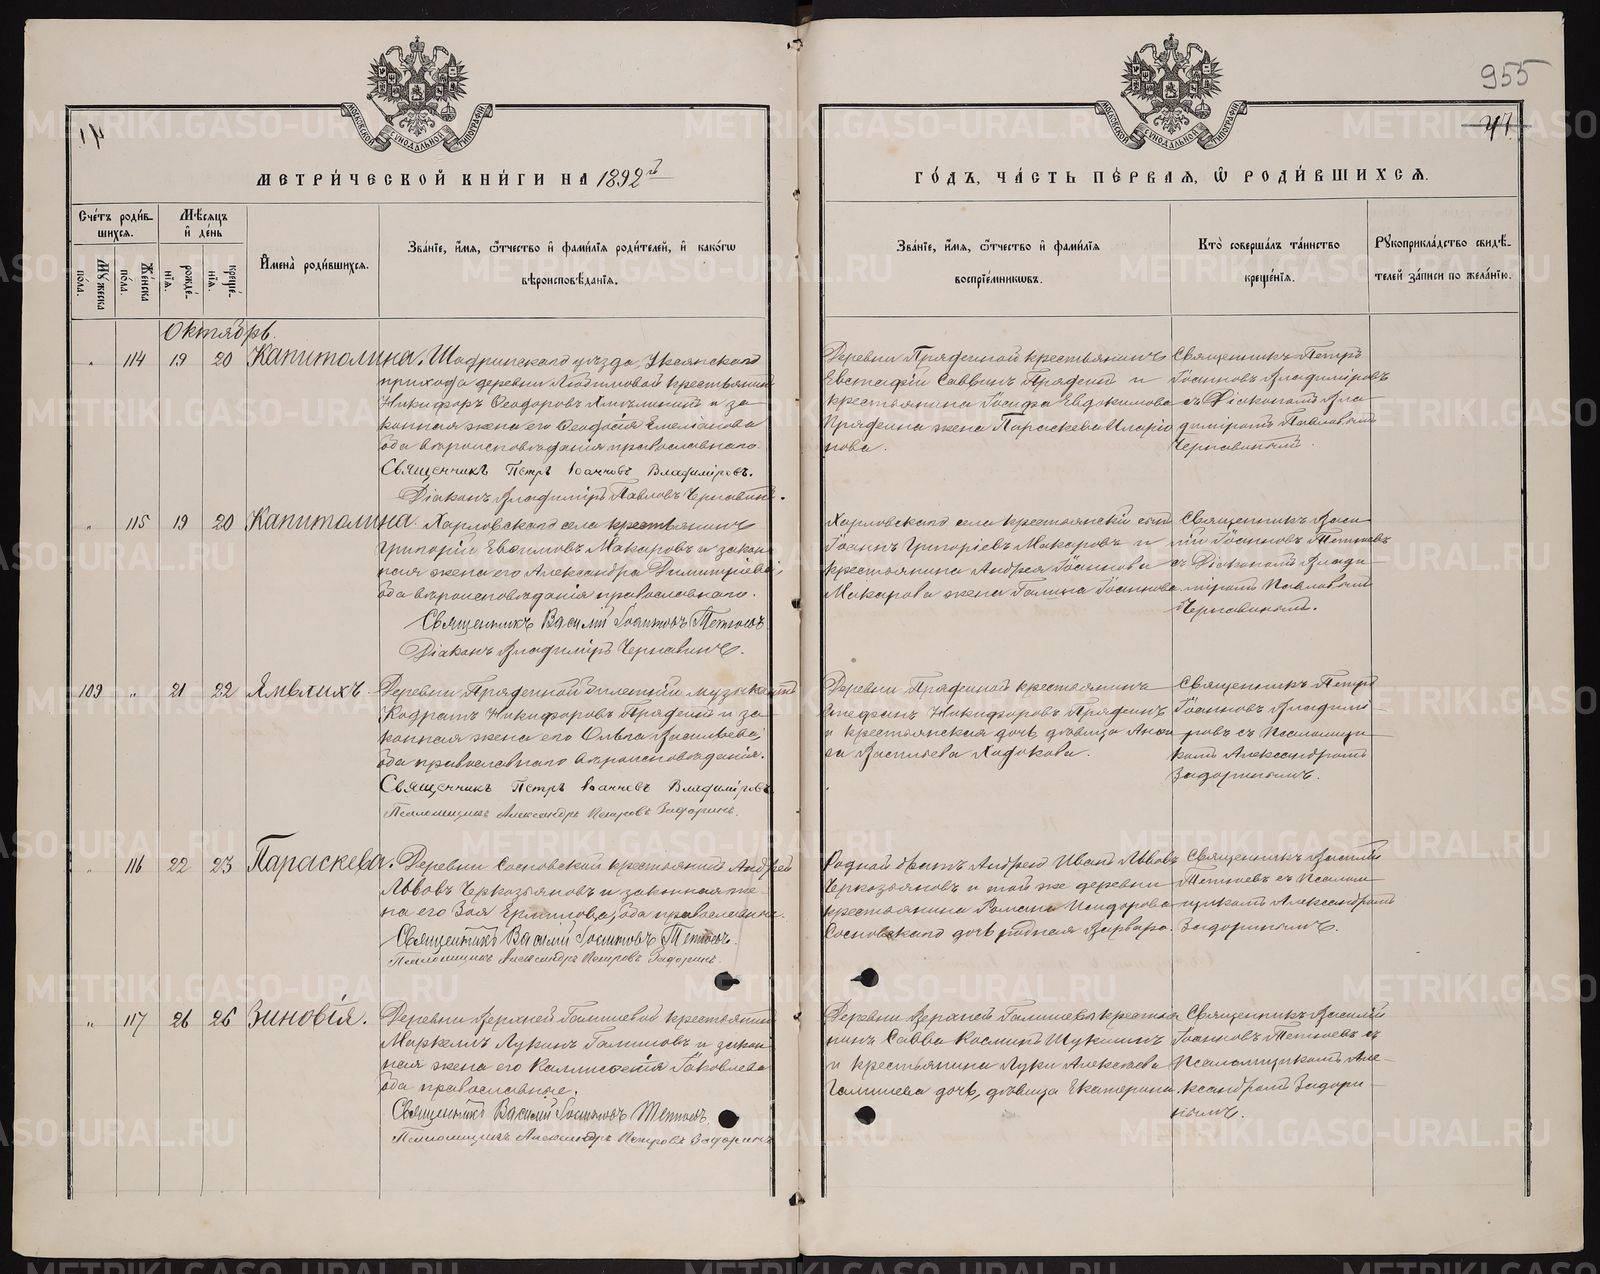 955
41
МОСКОВСКОЙ СѴНОДАЛЬНОЙ ТИПОГРАФІИ
МОСКОВСКОЙ СѴНОДАЛЬНОЙ ТИПОГРАФІИ
МЕТРИ́ЧЕСКОЙ КНИ́ГИ НА 1892й
ГО́ДЪ, ЧА́СТЬ ПЕ́РВАЯ, Ѡ РОДИ́ВШИХСЯ.
Сче́тъ роди́в-
шихся.
Му́жеска
по́ла.
Же́нска
по́ла.
Мѣ́сяцъ
и҆ де́нь
рожде́-
нїя.
креще́-
нїя.
И҆мена̀ роди́вшихся.
Зва́нїе, и҆́мя, ѻ҆́тчество и҆ фами́лїя роди́телей, и҆ како́гѡ
вѣроисповѣ́данїя.
Зва́нїе, и҆́мя, ѻ҆́тчество и҆ фами́лїя
воспрїе́мниковъ.
Кто̀ соверша́лъ та́инство
креще́нїя.
Рꙋкоприкла́дство свидѣ́-
телей за́писи по жела́нїю.
Октябрь.
" 114 19 20 Капитолина.
Шадринскаго уѣзда, Уксянскаго
прихода деревни Любимовой крестьянинъ
Никифоръ Ѳеодоровъ и за-
конная жена его Ѳеодосія Емельянова
оба вѣроисповѣданія православнаго.
Священникъ Петръ Іоанновъ Владиміровъ.
Діаконъ Владиміръ Павловъ Чернавинъ.
Деревни Пряденной крестьянинъ
Евстафій Саввинъ Прядеинъ и
крестьянина Іосифа Евдокимова
Прядеина жена Параскева Иларіо
нова.
Священникъ Петръ
Іоанновъ Владиміровъ
съ Діакономъ Вла-
диміромъ Павловымъ
Чернавинымъ.
" 115 19 20 Капитолина.
Харловскаго села крестьянинъ
Григорій Евѳимовъ Макаровъ и закон-
ная жена его Александра Димитріева,
оба вѣроисповѣданія православнаго.
Священникъ Василій Іоанновъ
Діаконъ Владиміръ Чернавинъ.
Харловскаго села крестьянскій сынъ
Іоаннъ Григоріевъ Макаровъ и
крестьянина Андрея Іоаннова
Макарова жена Галина Іоаннова
Священникъ Васи-
лій Іоанновъ
съ Діакономъ Влади-
міромъ Павловымъ
Чернавинымъ.
109 " 21 22 Ямвлихъ.
Деревни Пряденной билетный музыкантъ
Кодратъ Никифоровъ Прядеинъ и за-
конная жена его Ольга Васильева,
оба православнаго вѣроисповѣданія.
Священникъ Петръ Іоанновъ Владиміровъ
Псаломщикъ Александръ Петровъ Задоринъ.
Деревни Пряденной крестьянинъ
Стефанъ Никифоровъ Прядеинъ
и крестьянская дочь, дѣвица Анси
са Васильева Ходокова.
Священникъ Петръ
Іоанновъ Владимі-
ровъ съ Псаломщи-
комъ Александромъ
Задоринымъ.
" 116 22 23 Параскева.
Деревни Сосновской крестьянинъ Андрей
Львовъ Черкозьяновъ и законная же-
на его Зоя Ермилова, оба православнаго.
Священникъ Василій Іоанновъ
Псаломщикъ Александръ Петровъ Задоринъ.
Родной братъ Андрею Иванъ Львовъ
Черкозьяновъ и той же деревни
крестьянина Романа Исидорова
Сосновскаго дочь родная Варвара.
Священникъ Василій
съ Псалом-
щикомъ Александромъ
Задоринымъ.
" 117 26 26 Зиновія.
Деревни Верхней Галишевой крестьянинъ
Маркеллъ Лукинъ Галишовъ и закон
ная жена его Каллисѳенія Іаковлева
оба православные.
Священникъ Василій Іоанновъ
Псаломщикъ Александръ Петровъ Задоринъ
Деревни Верхней Галишева крестья
нинъ Савва Косминъ Шукшинъ
и крестьянина Луки Алексѣева
Галишева дочь, дѣвица Екатерина
Священникъ Василій
Іоанновъ съ
Псаломщикомъ Але-
ксандромъ Задори-
нымъ.
METRIKI.GASO-URAL.RU